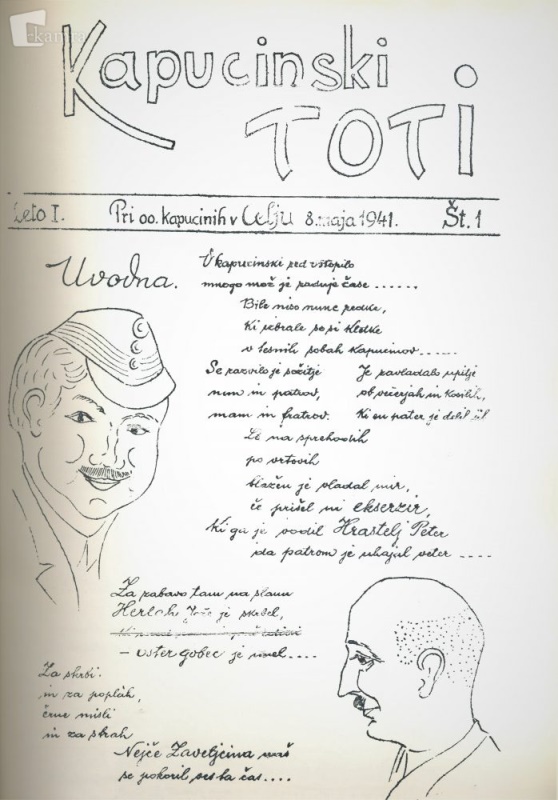 Kamra
Kapucinski
TOTI
Leto I. Pri oo. kapucinih v Celju 8. maja 1941. Št. 1
Uvodna.
V kapucinski red vstopilo
mnogo mož je zadnje čase ......
Bile niso nune redke,
ki izbrale so si kletke
v tesnih sobah kapucinov ......
Se razvilo je sožitje
nun in patrov,
mam in fratrov.
Je zavladalo vpitje
ob večerjah in kosilih,
Ki en pater je delil
Le na sprehodih
po vrtovih
blažen je vladal mir,
če prišel ni ekserzir,
ki ga je vodil Hrastelj Peter
da patrom je uhajal veter ....
Za zabavo tam na slamu
je skrbel,
– oster gobec je imel....
Za skrbi
in za
črne misli
in za strah
Nejče naš
se pokoril ves ta čas....